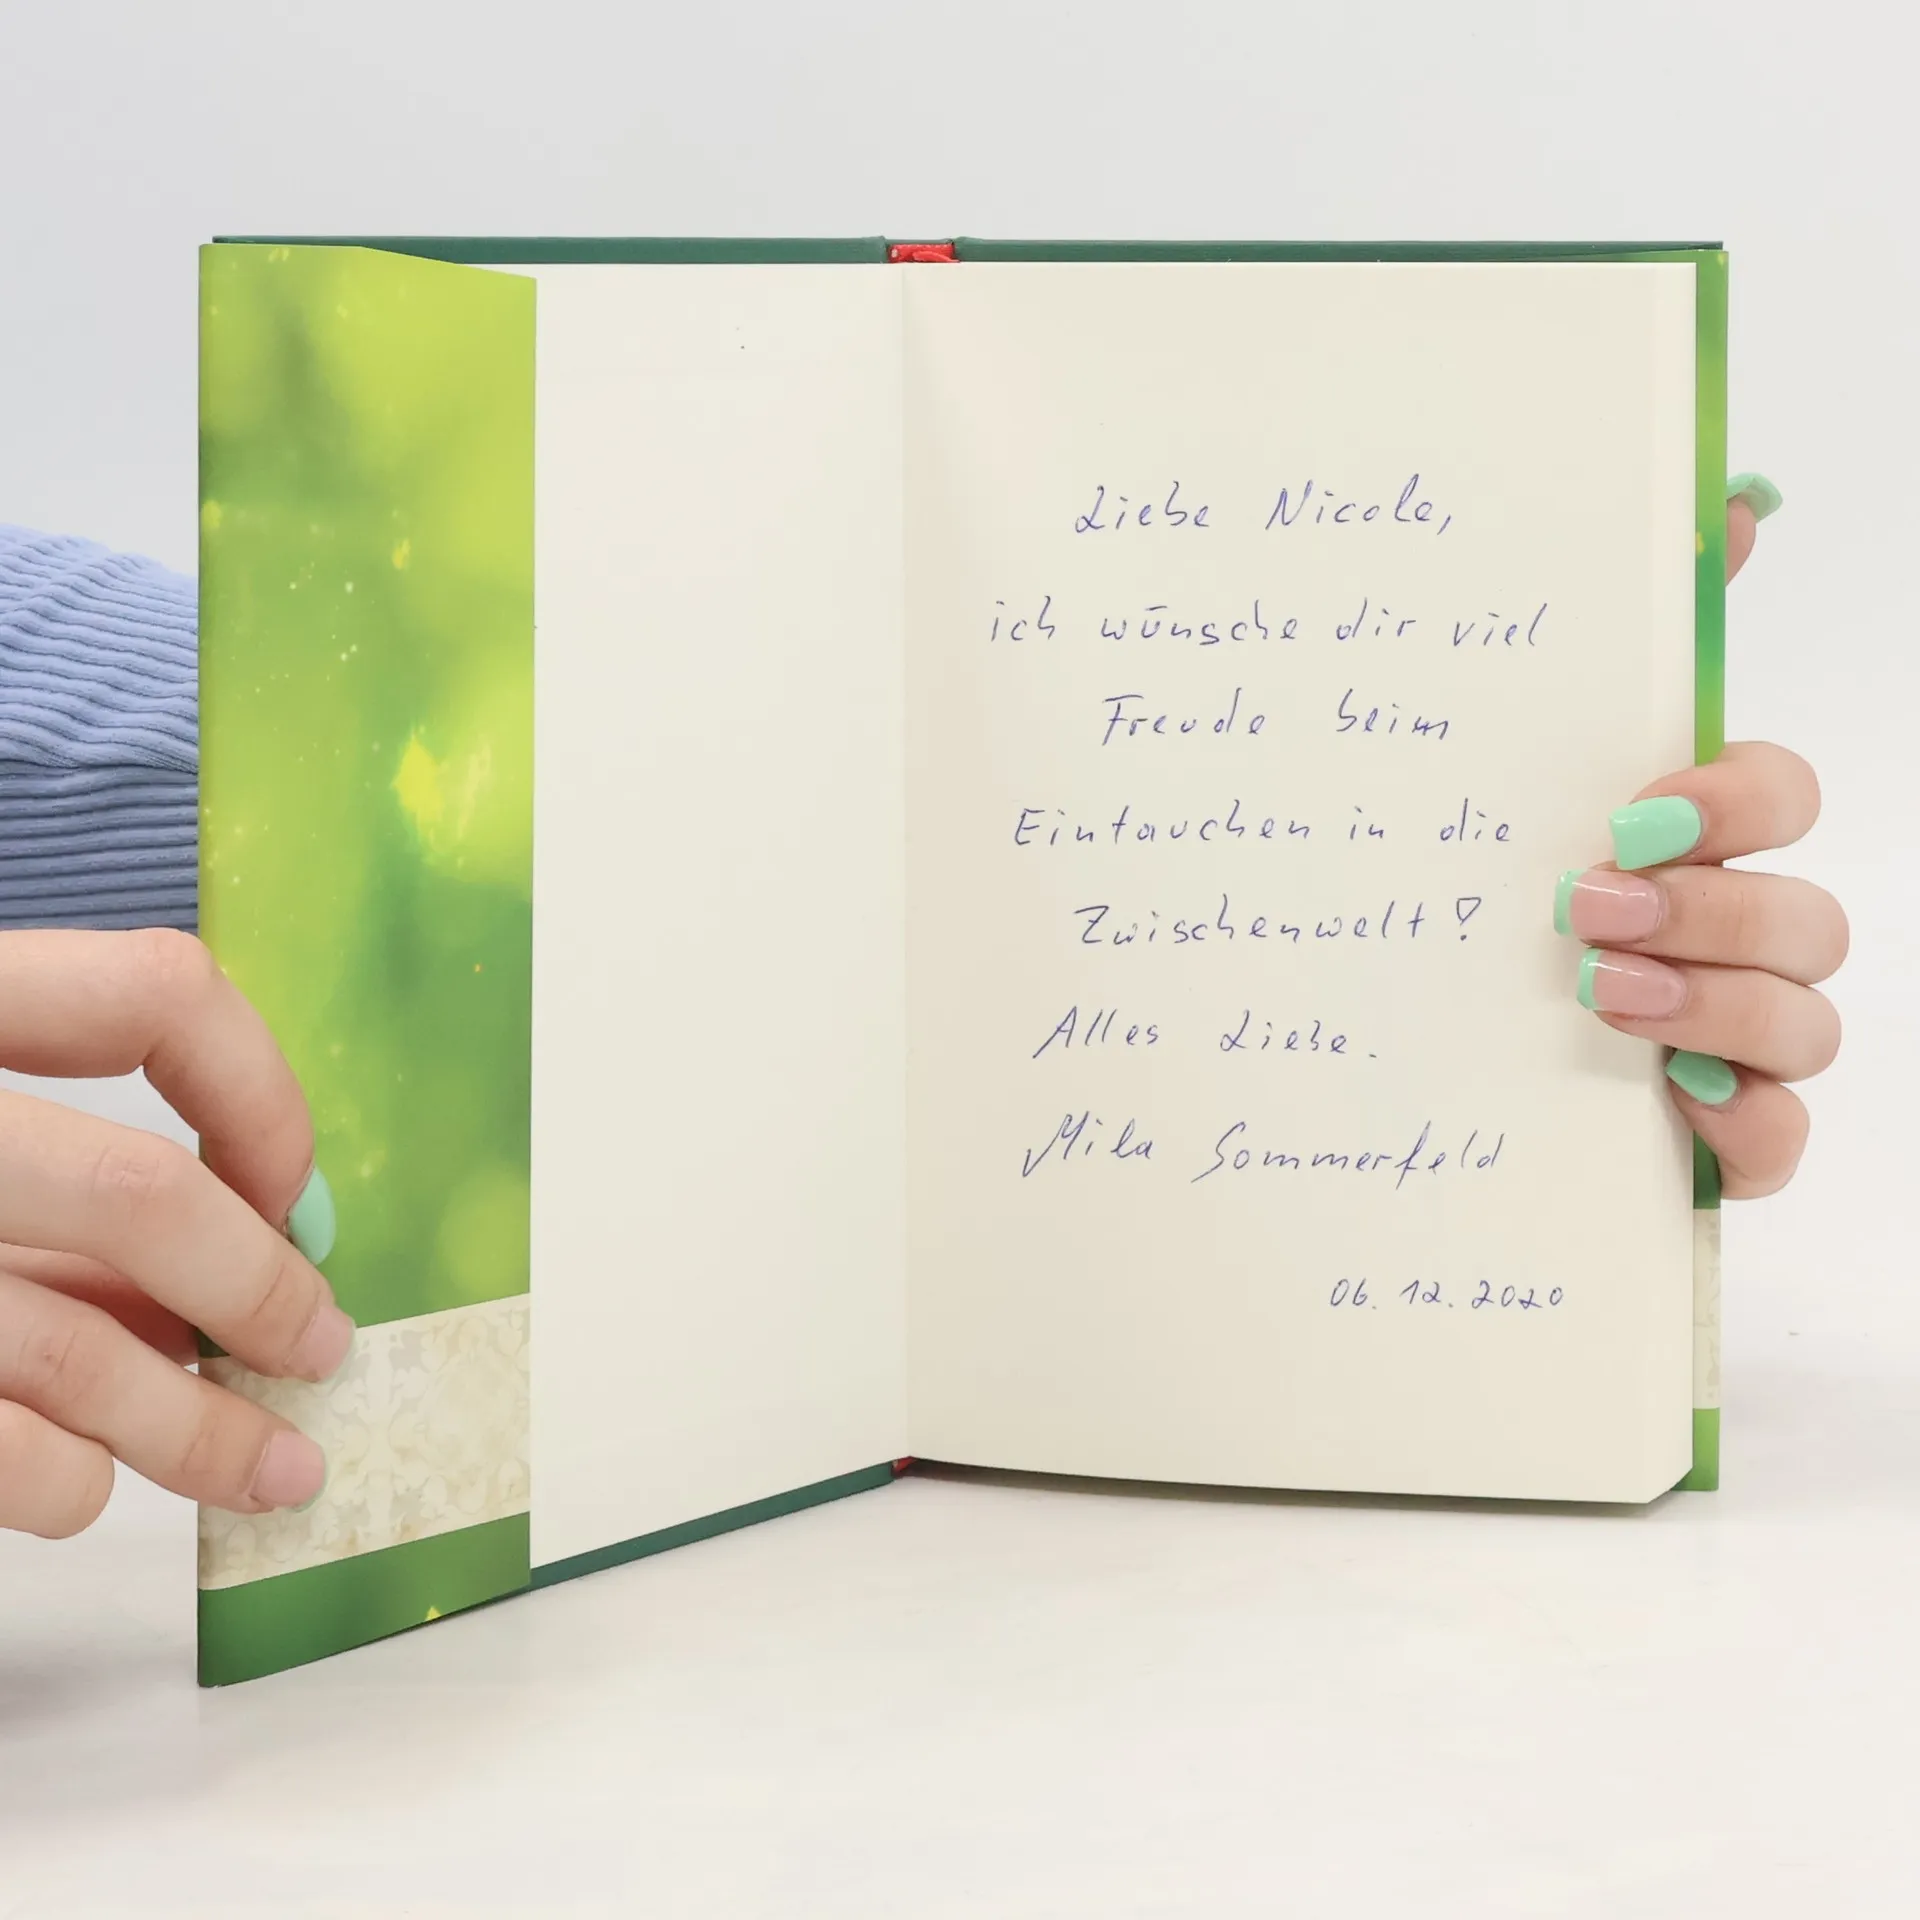 Liebe Nicole,
ich wünsche dir viel
Freude beim
Eintauchen in die
Zwischenwelt!
Alles Liebe.
Mila Sommerfeld
06. 12. 2020